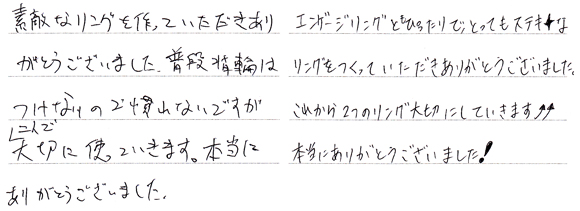 素敵なリングを作っていただきあり
がとうございました。普段指輪は
つけないので慣れないですが
二人で
大切に使っていきます。本当に
ありがとうございました。
エンゲージリングともぴったりでとってもステキな
リングをつくっていただきありがとうございました。
これから2つのリング大切にしていきます↑↑
本当にありがとうございました!